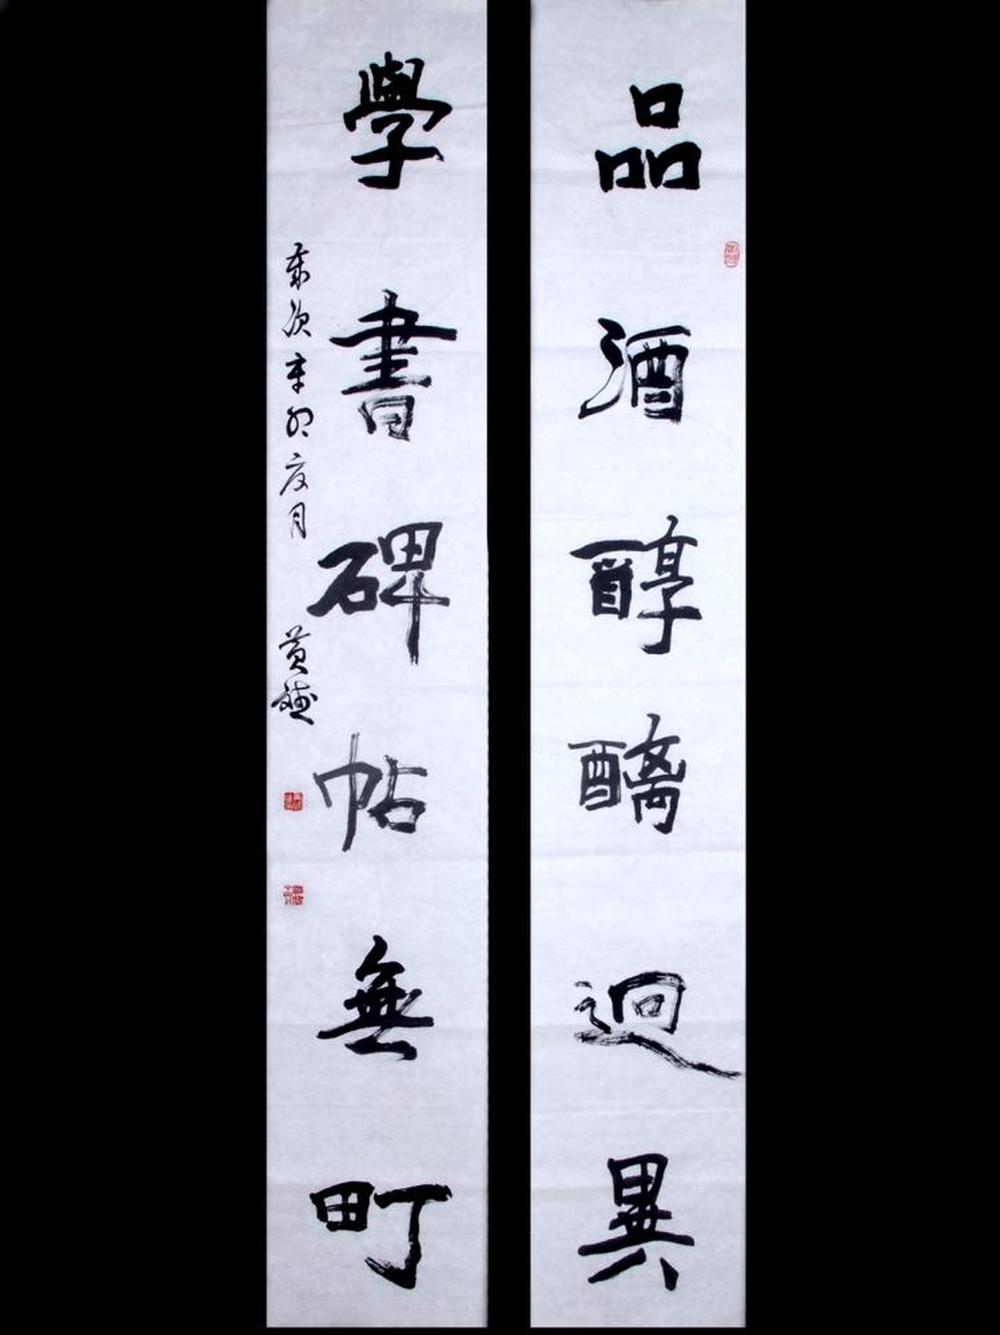 品酒醇醨迥異
學書碑帖無町
歲次辛卯夏月
黃